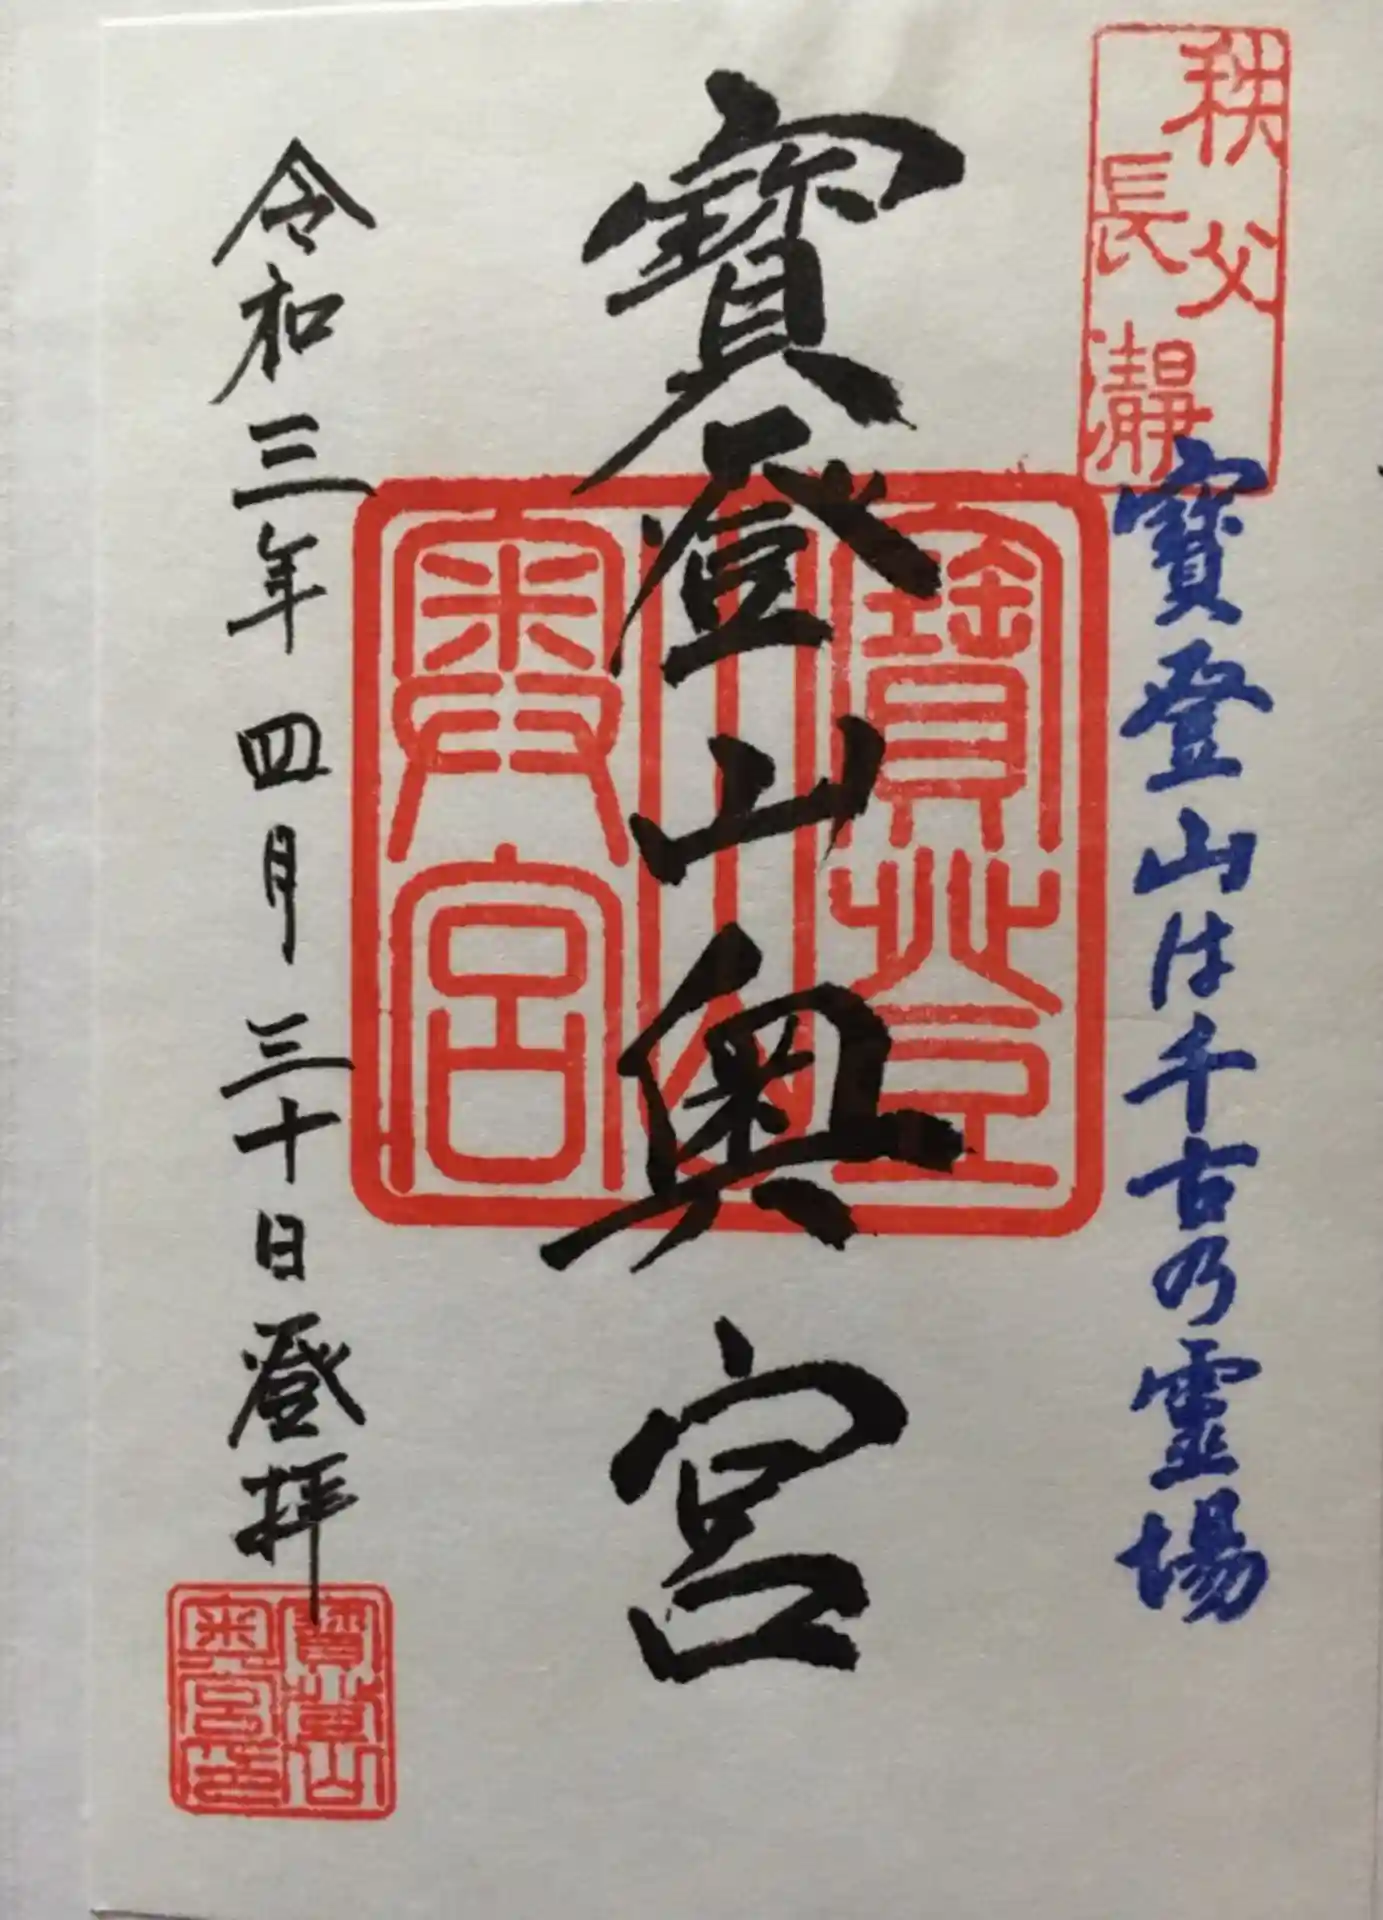 秩父
長瀞
寶登山は千古乃霊場
寶登山奥宮
寶登
山
奥宮
令和三年四月三十日登拝
寶登山
奥宮印